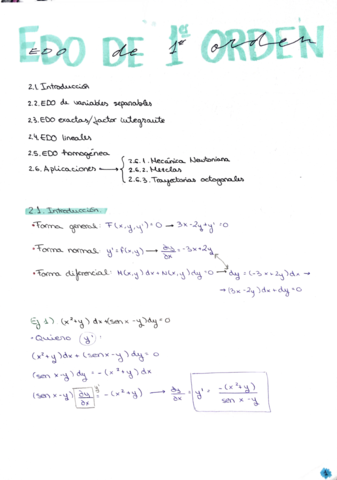 EDO DE 1er ORDEN
EDO de 1er orden
2.1. Introducción
2.2. EDO de variables separables
2.3. EDO exactas/factor integrante
2.4. EDO lineales
2.5. EDO homogénea
2.6. Aplicaciones → { 2.6.1. Mecánica Newtoniana
2.6.2. Mezclas
2.6.3. Trayectorias octogonales
2.1. Introducción
• Forma general: F(x,y,y')=0 → 3x-2y+y'=0
• Forma normal: y'=f(x,y) → ∂y/∂x = -3x+2y
• Forma diferencial: M(x,y)dx+N(x,y)dy=0 → dy=(-3x+2y)dx →
→ (3x-2y)dx+dy=0
Ej 1) (x²+y)dx+(sen x-y)dy=0
• Quiero (y'):
(x²+y)dx+(sen x-y)dy=0
(sen x-y)dy=-(x²+y)dx
(sen x-y) ∂y/∂x = -(x²+y) → ∂y/∂x = y' = -(x²+y)/sen x-y